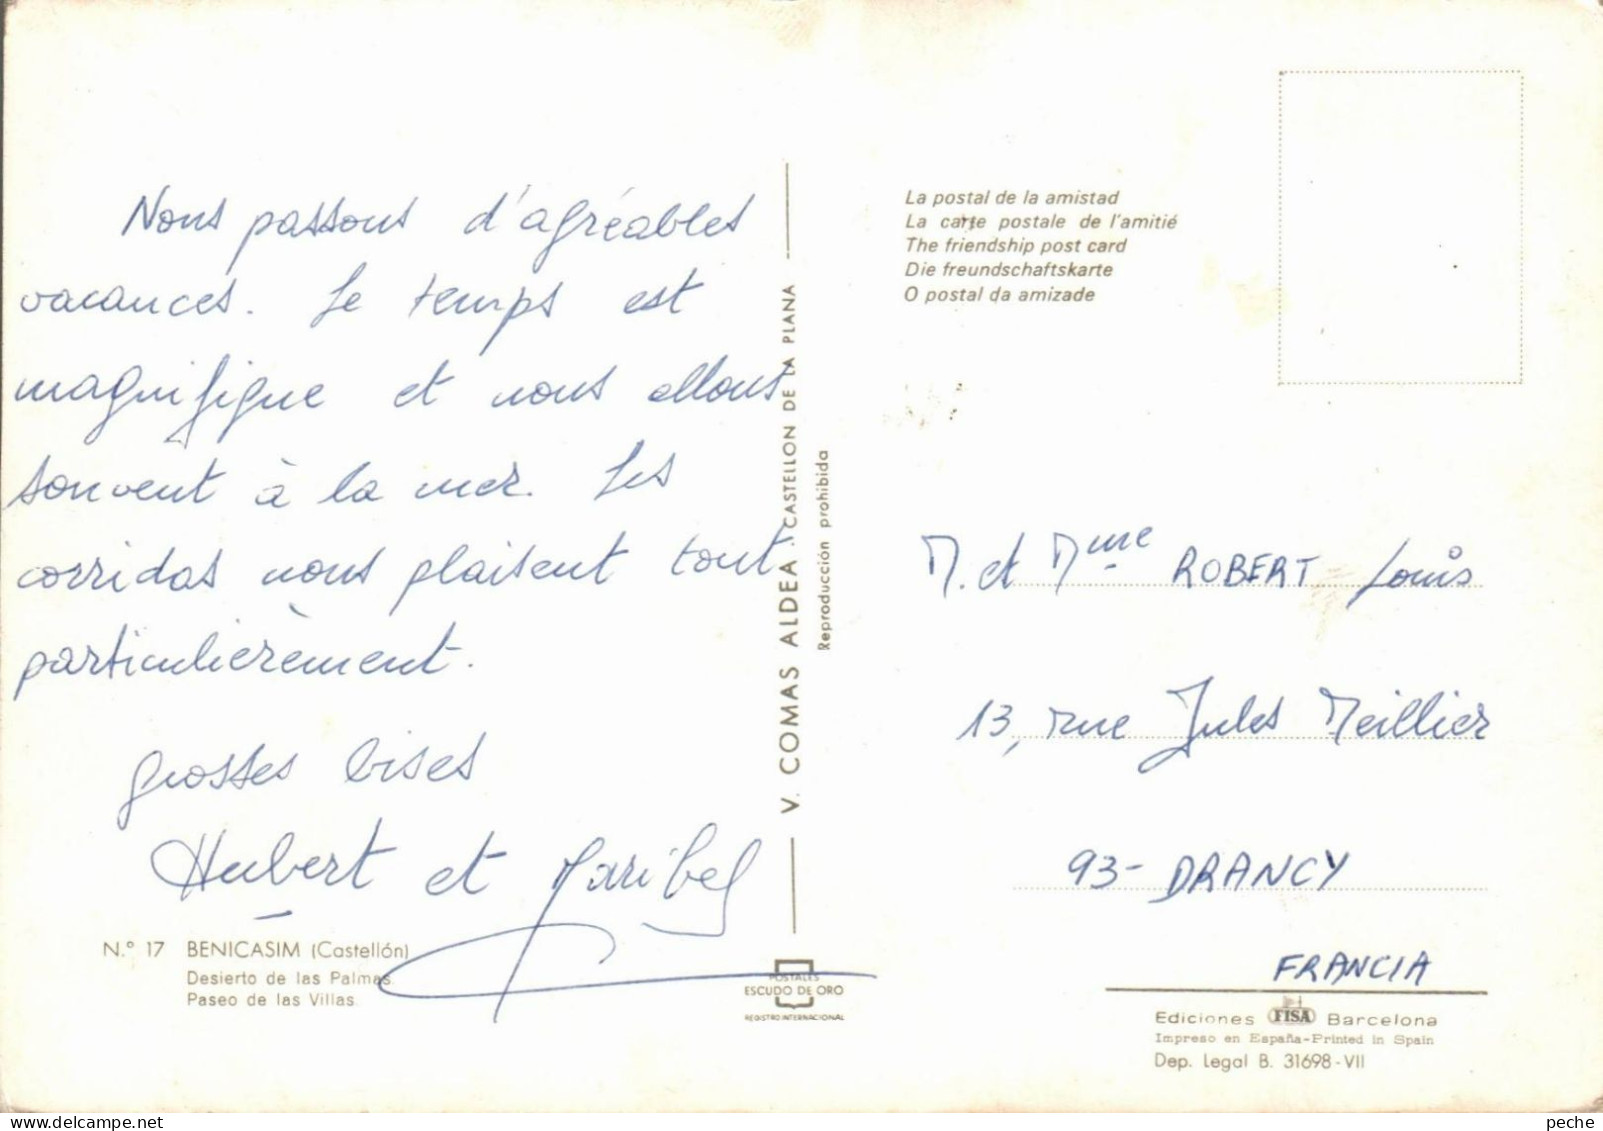 Nous passons d'agréables
vacances. Le temps est
magnifique et nous allons
souvent à la mer. Les
corridas nous plaisent tout
particulièrement.
grosses bises
Hubert et Maribel
N.° 17 BENICASIM (Castellón)
Desierto de las Palmas
Paseo de las Villas
V. COMAS ALDEA. CASTELLON DE LA PLANA
Reproducción prohibida
POSTALES
ESCUDO DE ORO
REGISTRO INTERNACIONAL
La postal de la amistad
La carte postale de l'amitié
The friendship post card
Die freundschaftskarte
O postal da amizade
M. et Mme ROBERT Louis
13, rue Jules Meillier
93- DRANCY
FRANCIA
Ediciones FISA Barcelona
Impreso en España-Printed in Spain
Dep. Legal B. 31698-VII
peche